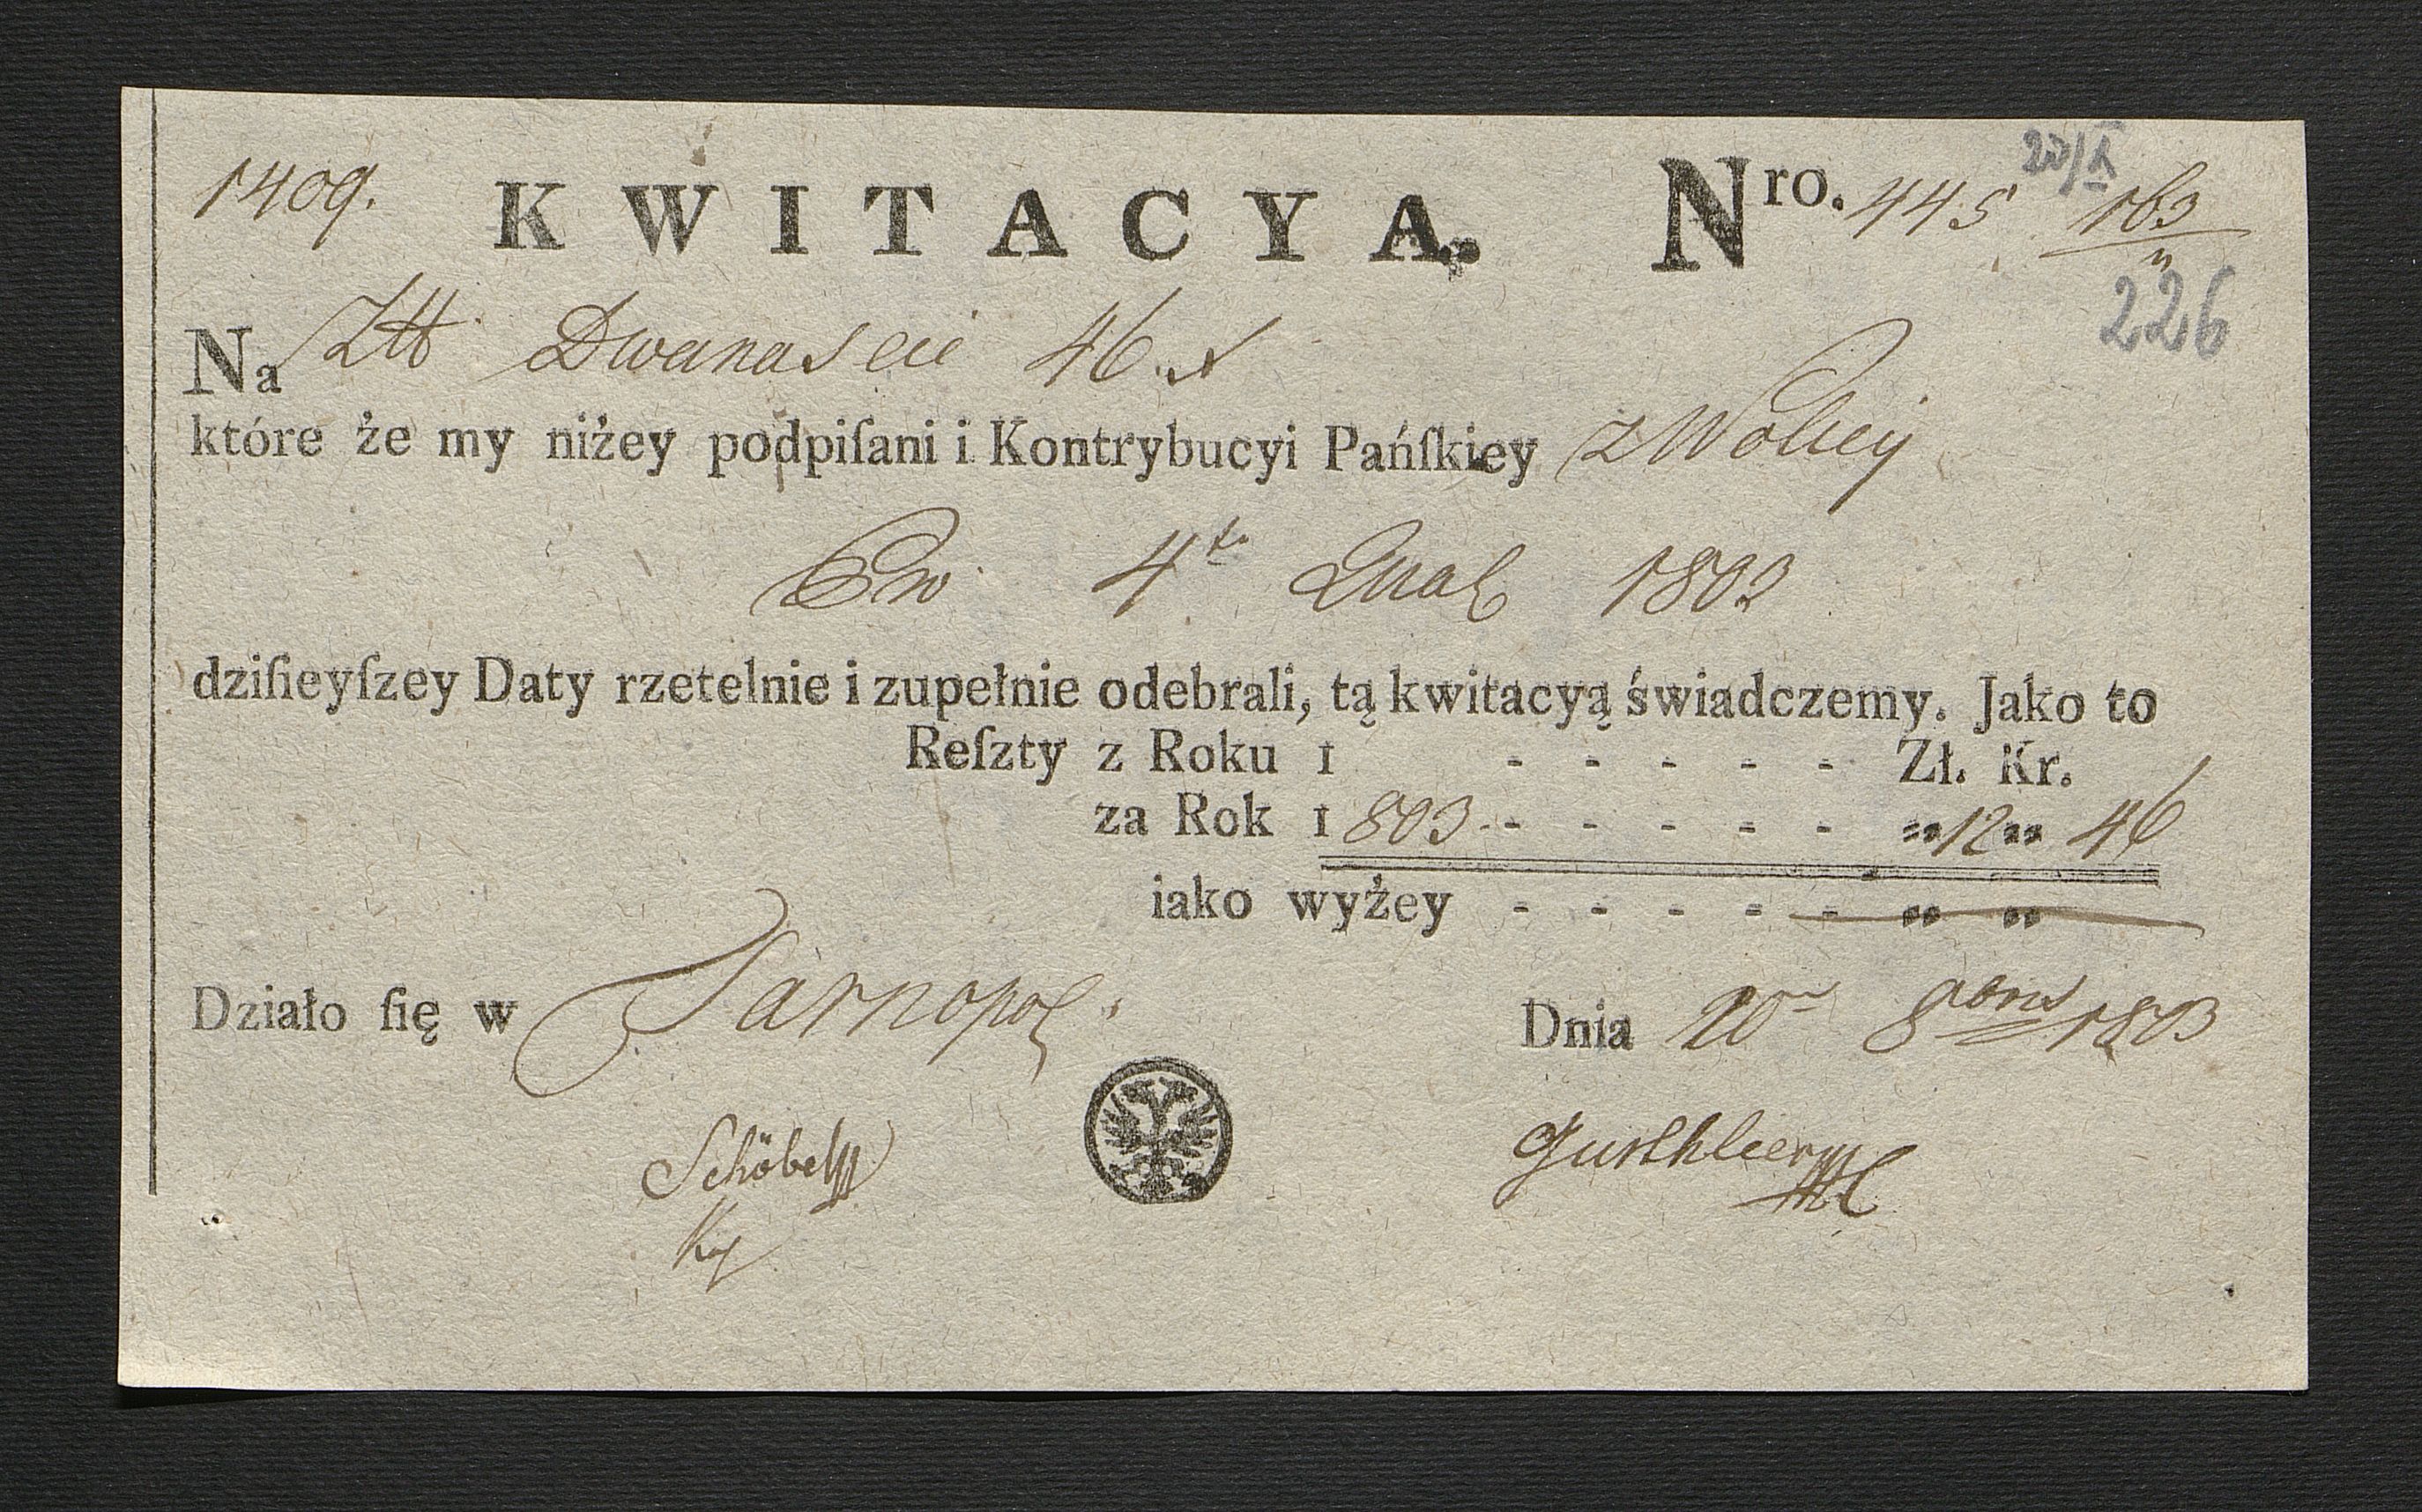 1409. KWITACYA. Nro. 445 163
226
Na Dwanascie 46.
które że my niżey podpiſani i Kontrybucyi Pańſkiey z Wolicy
4to 1803
dziſieyſzey Daty rzetelnie i zupełnie odebrali, tą kwitacyą świadczemy. Jako to
Reſzty z Roku 1 - - - - - Zł. Kr.
za Rok 1803 - - - - - „12„ 46
iako wyżey - - - - - „ „
Działo ſię w Tarnopol Dnia 20 8bris 1803
Schöbel